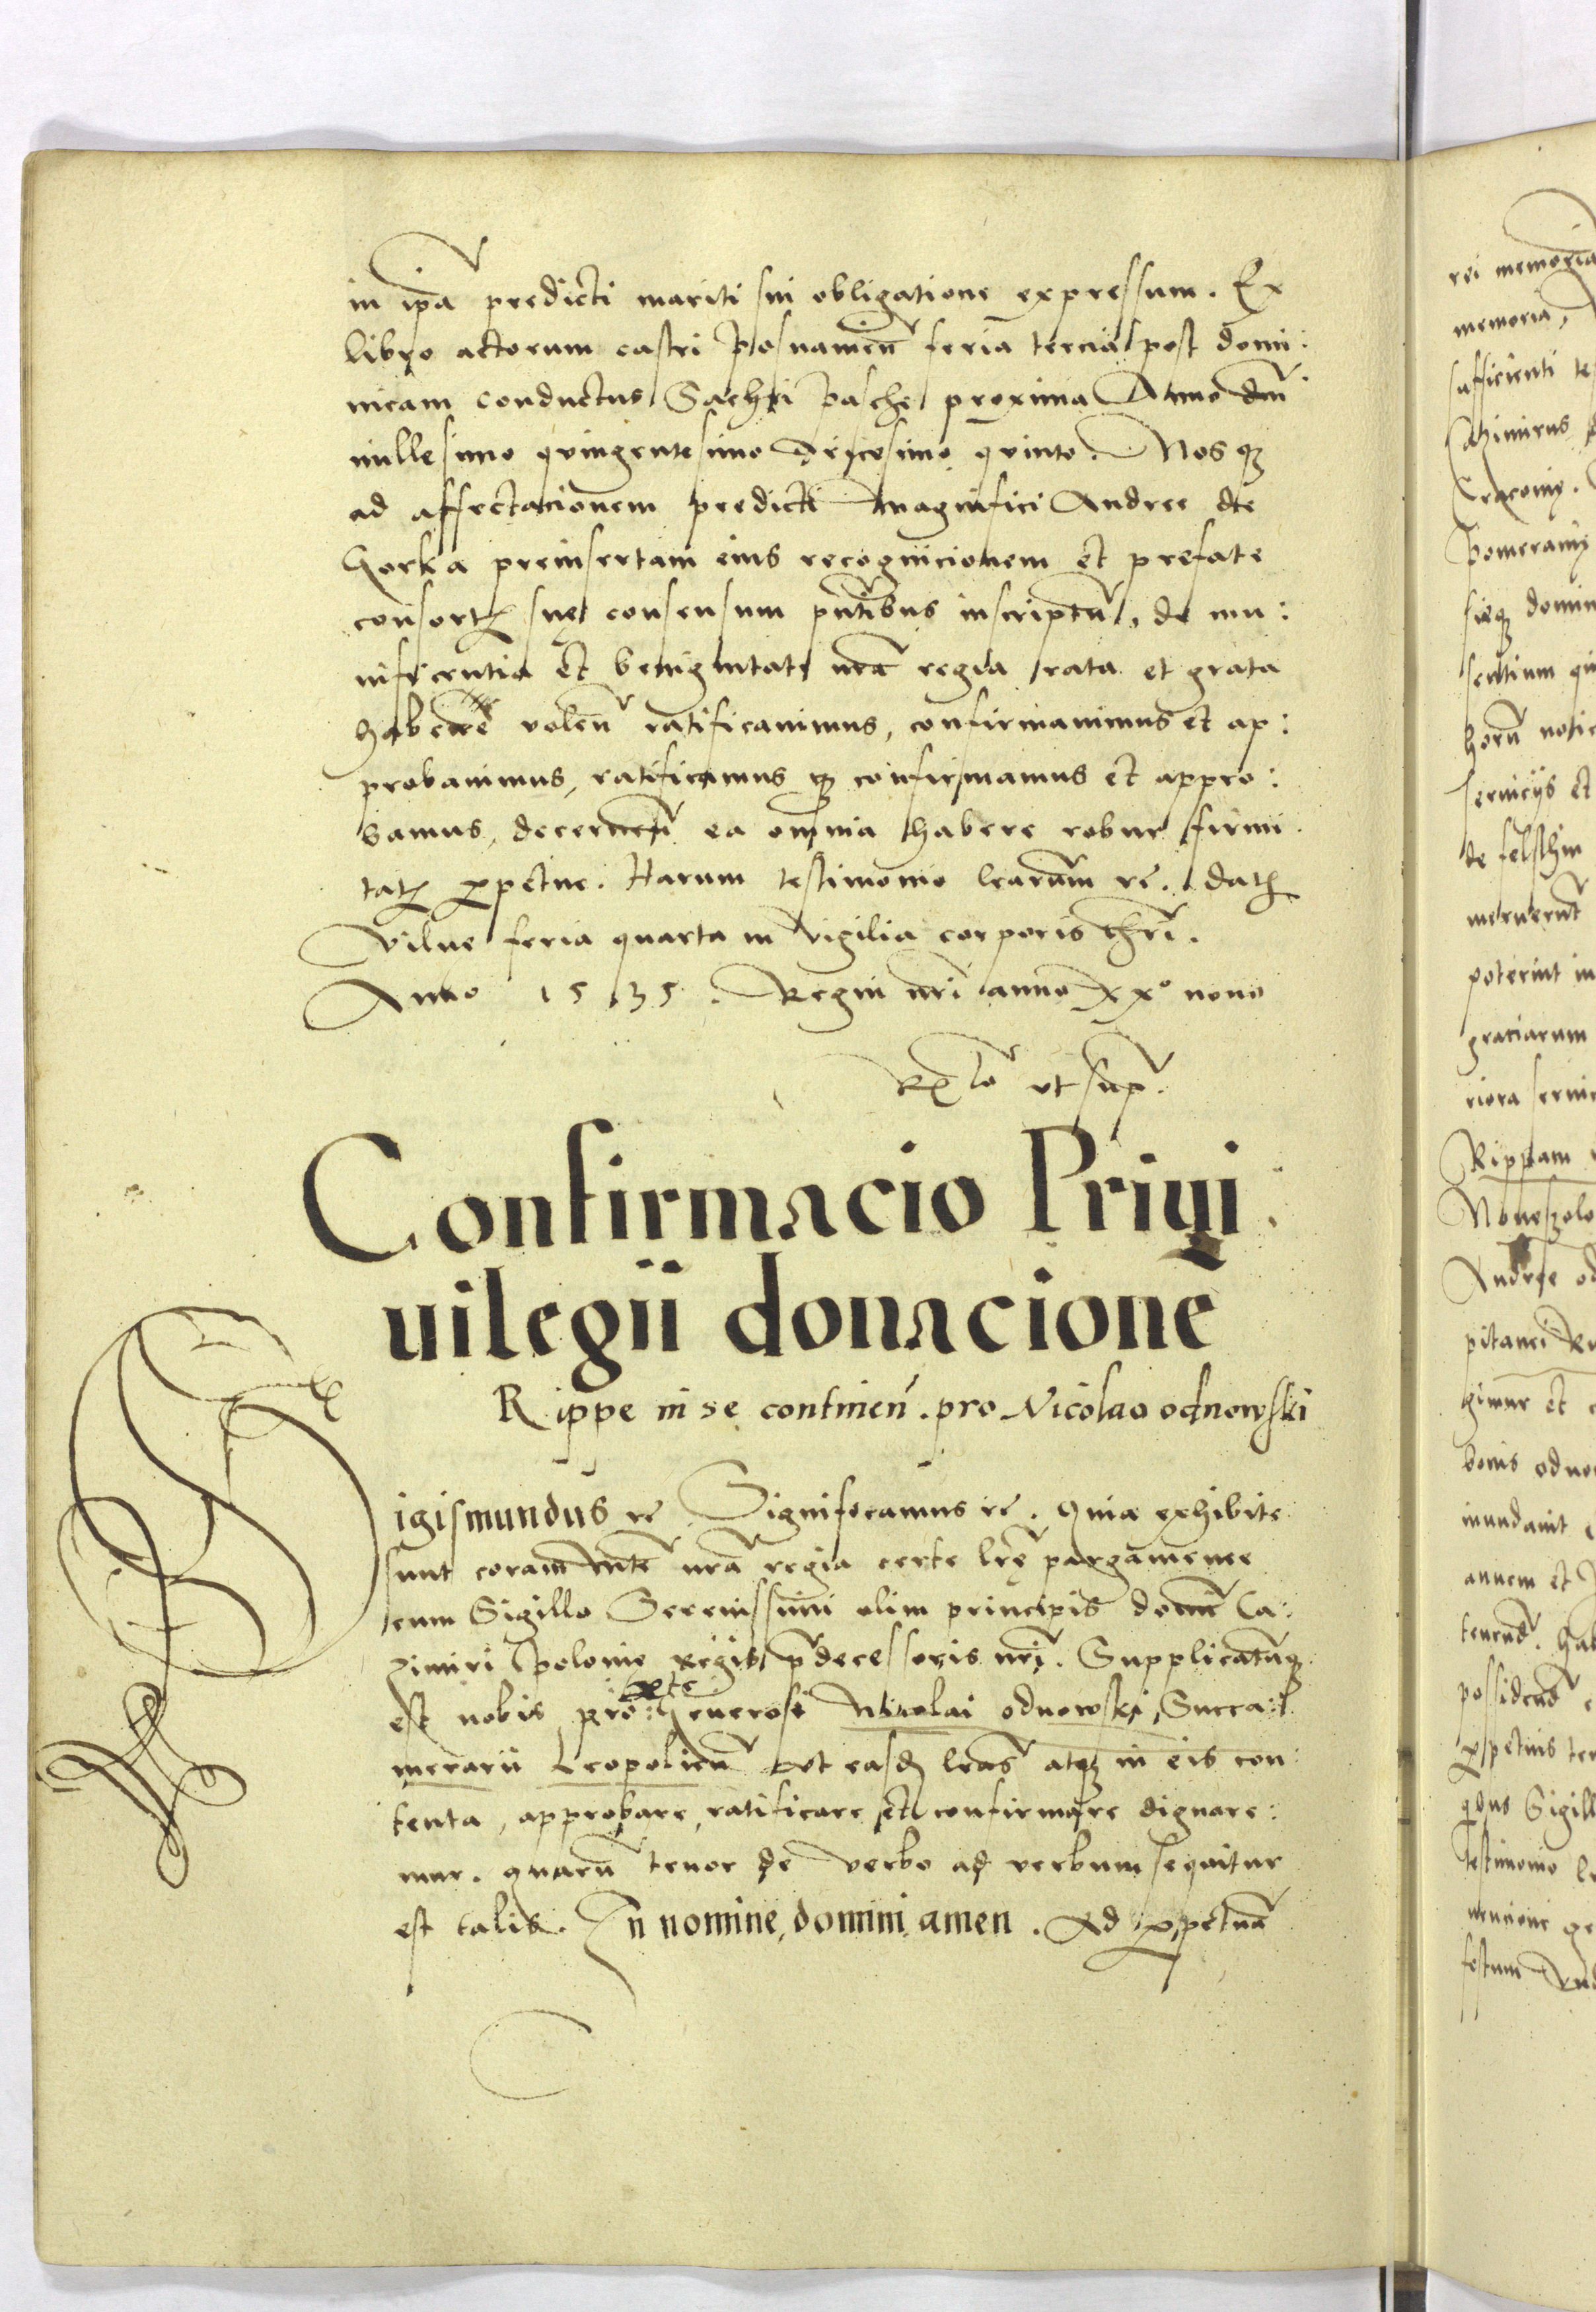 in ip̄a predicti mariti sui obligatione expressum. Ex
libro actorum castri Posnaniēn feria tercia post domi:
nicam conductus Sachri Pasche proxima Anno dnī
millesimo quingentesimo Tricesimo quinto. Nos qz
ad affectacionem predicti magnifici Andree de
Gorka preinsertam eius recognicionem et prefate
consortis sue consensum pn̄tibus inscriptū, de mu:
nificentia et benignitate nr̄a regia rata et grata
habere volen̄ ratificavimus, confirmavimus et ap:
probavimus, ratificamus qz confirmamus et appro:
bamus, decernen̄ ea omnia habere robur firmi
tatis perpetue. Harum testimonio learum rē. datis
Vilne feria quarta in vigilia corporis chrī.
Anno 1535. Regni nrī anno xxº nono
Rlō ut sup̄.
Confirmacio Priui
uilegii donacione
Rippe in se continen̄. pro Nicolao odnowski
Sigismundus rē Significamus rē. Quia exhibite
sunt coram Mte nr̄a regia certe lrē pargamenee
cum Sigillo Serenissimi olim principis domī Ca:
zimiri Polonie regis p̄decessoris nrī. Supplicatūqz
est nobis pro parte Generosi Nicolai odnowski, Succa:
merarii Leopolien̄ Ut easd leās atqz in eis con:
tenta, approbare, ratificare et confirmare dignare:
mur. quarū tenor de verbo ad verbum sequitur
est talis. In nomine domini amen. Ad perpetuā
rei memoria
memoria,
sufficienti te
Cracovie.
Pomeranie
sieqz domin
sentium qui
horū notic
serviciis et
de felsthin
meruerūt
poterint in
graciarum
riora servic
Rippam
Andree od
pitanei Ru
gimur et
bonis odno
inundavit
amnem et
tenend̄. hab
possidend̄
perpetuis te
quos Sigill
testimonio le